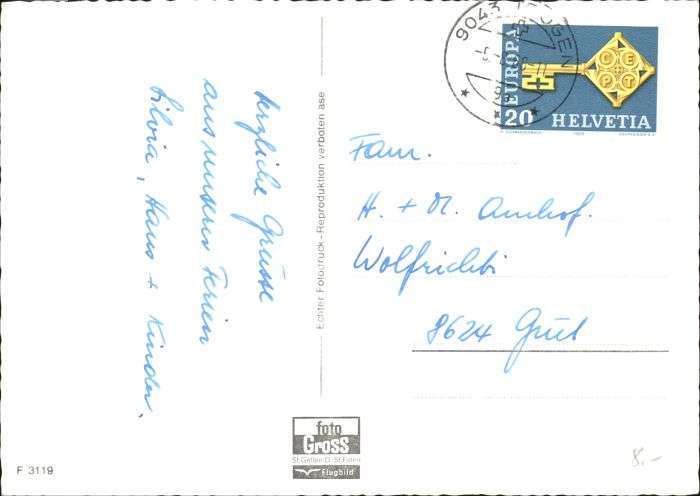 herzliche Grüsse
aus unseren Ferien
Silvia, Hans + Kinder.
Echter Fotodruck - Reproduktion verboten ase
9043 TROGEN
EUROPA
CEPT
20 HELVETIA
Fam.
H. + M. Amhof.
8624 Grüt
foto
Gross
St. Gallen O. St. Fiden
Flugbild
F 3119
8.-